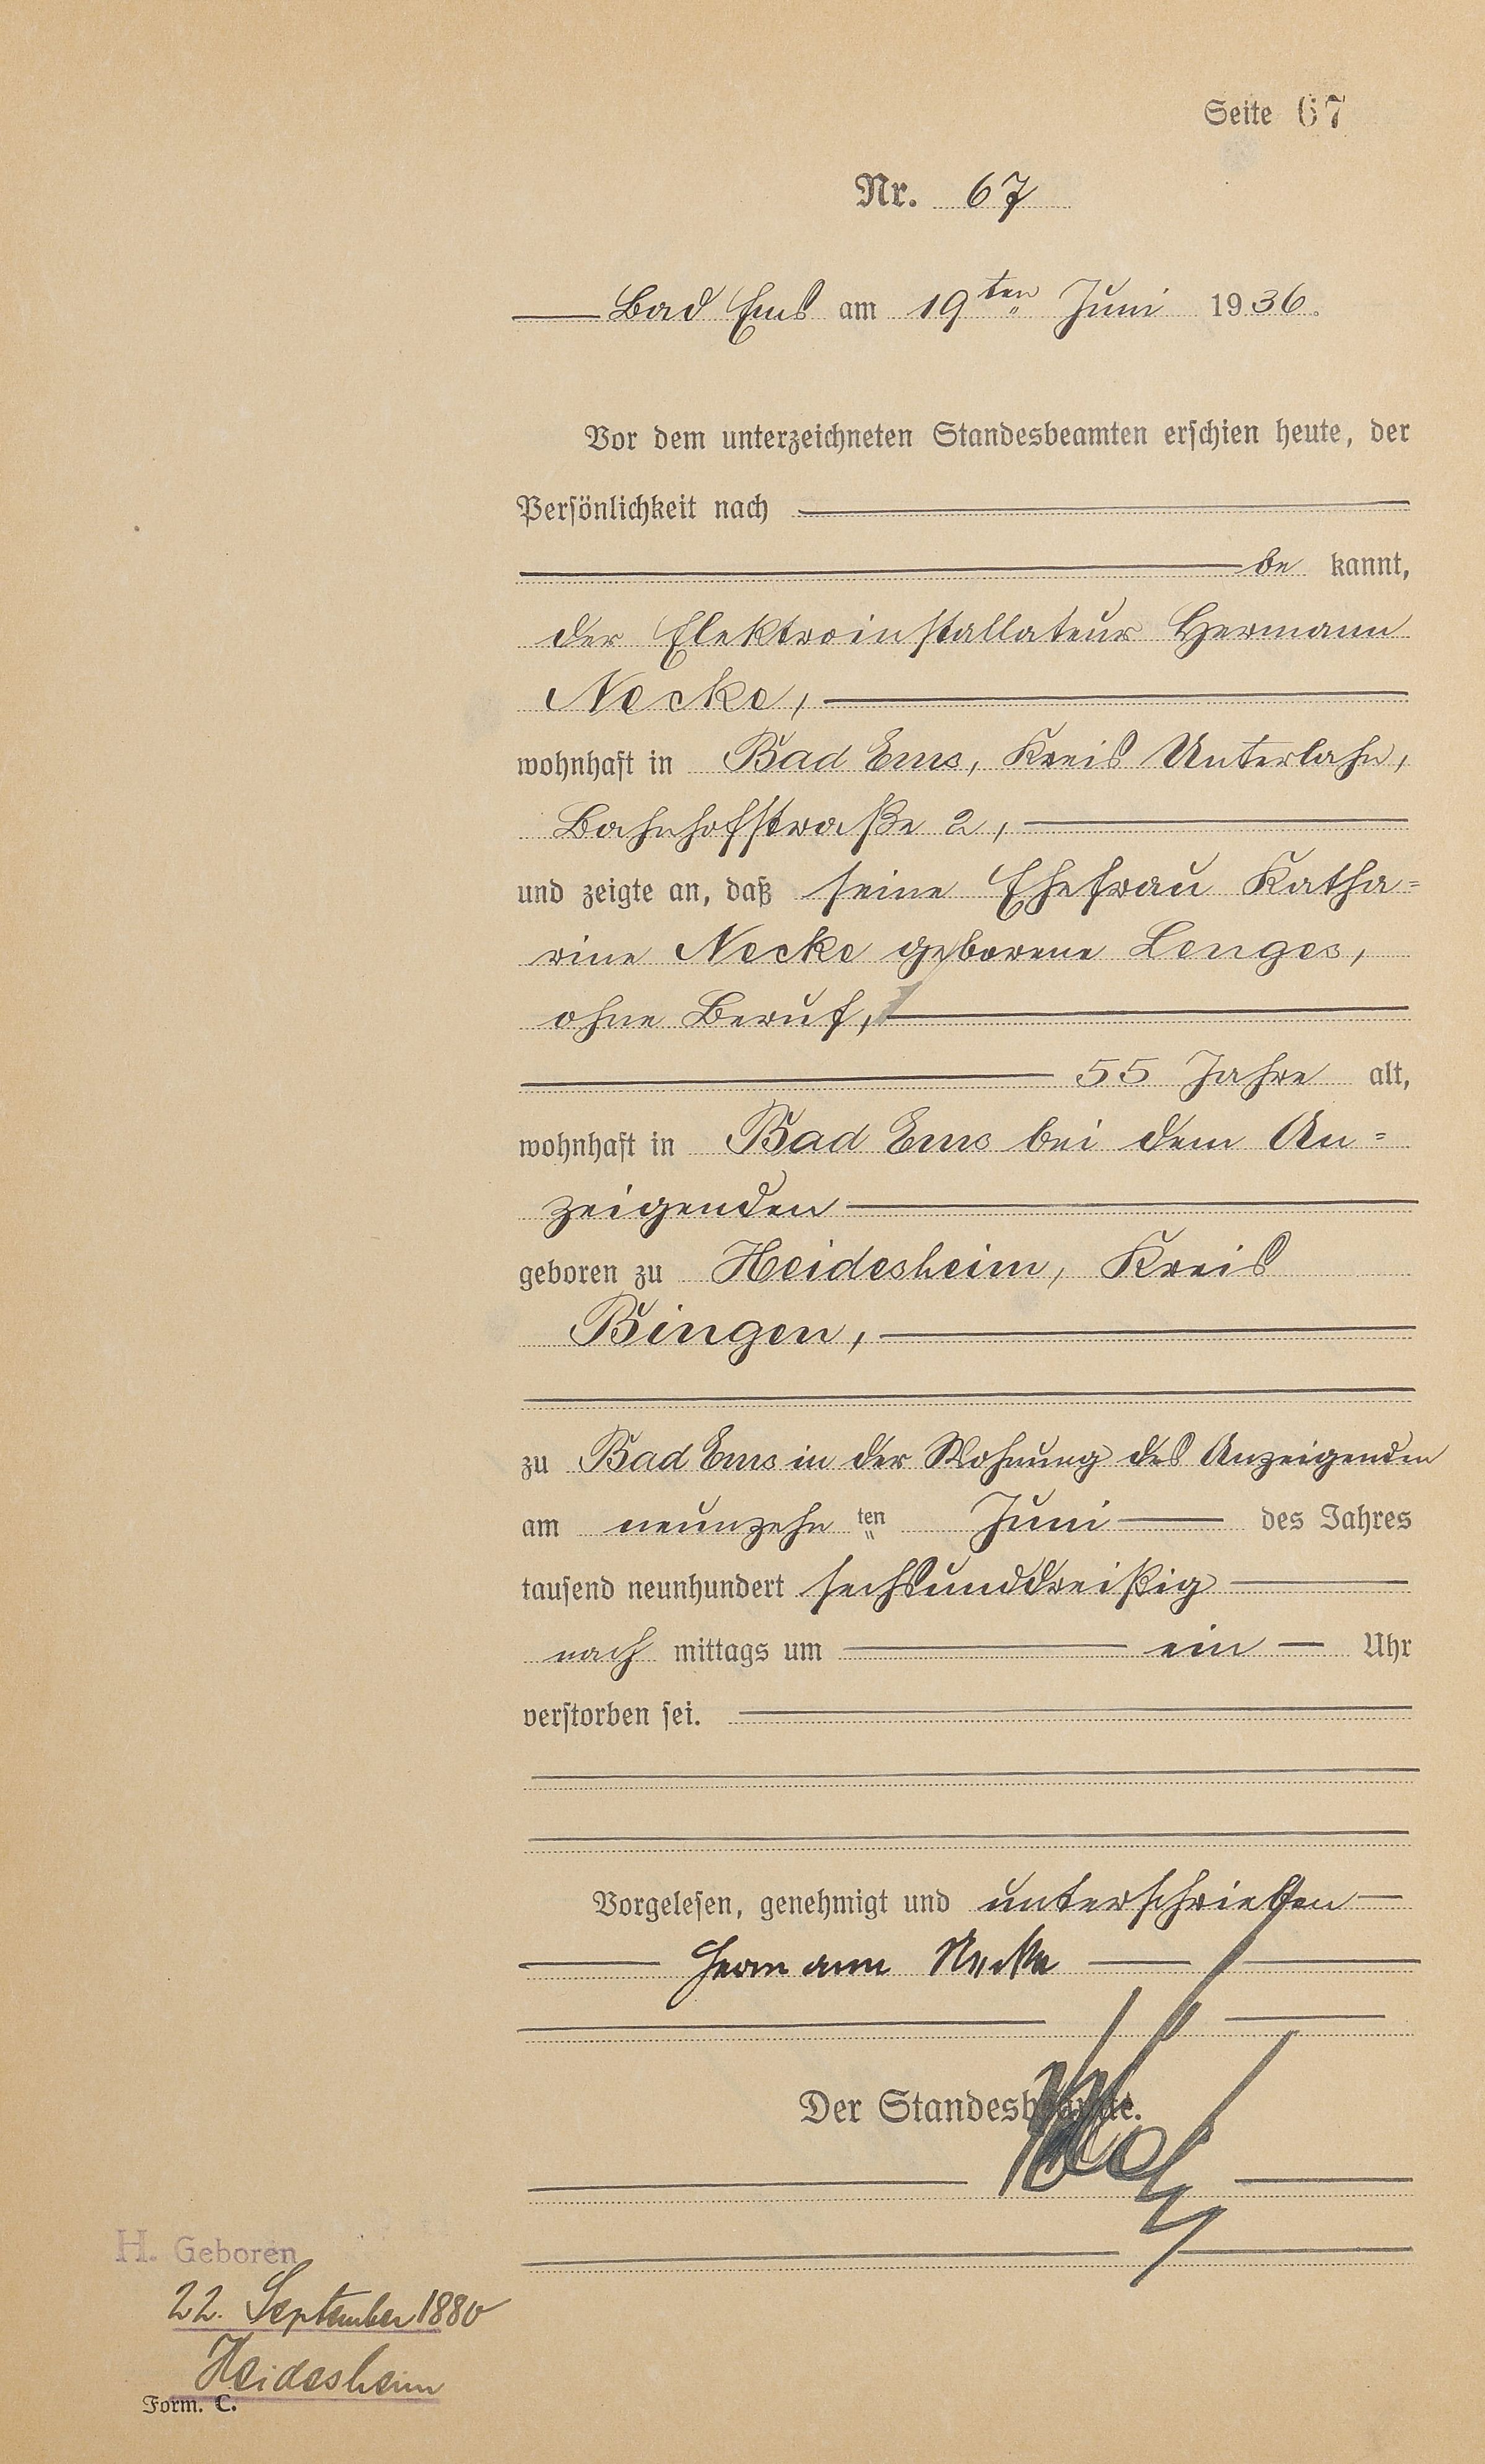 Seite 67
Nr. 67
Bad Ems am 19ten Juni 1936.
Vor dem unterzeichneten Standesbeamten erschien heute, der
Persönlichkeit nach
be kannt,
der Elektroinstallateur Hermann
Necke,
wohnhaft in Bad Ems, Kreis Unterlahn,
Bahnhofstraße 2,
und zeigte an, daß seine Ehefrau Katha=
rine Necke geborene Lenges,
ohne Beruf,
55 Jahre alt,
wohnhaft in Bad Ems bei dem An=
zeigenden
geboren zu Heidesheim, Kreis
Bingen,
zu Bad Ems in der Wohnung des Anzeigenden
am neunzehn ten Juni des Jahres
tausend neunhundert sechsunddreißig
nach mittags um ein Uhr
verstorben sei.
Vorgelesen, genehmigt und unterschrieben
Hermann Necke
Der Standesbeamte.
H. Geboren
22. September 1880
Heidesheim
Form. C.